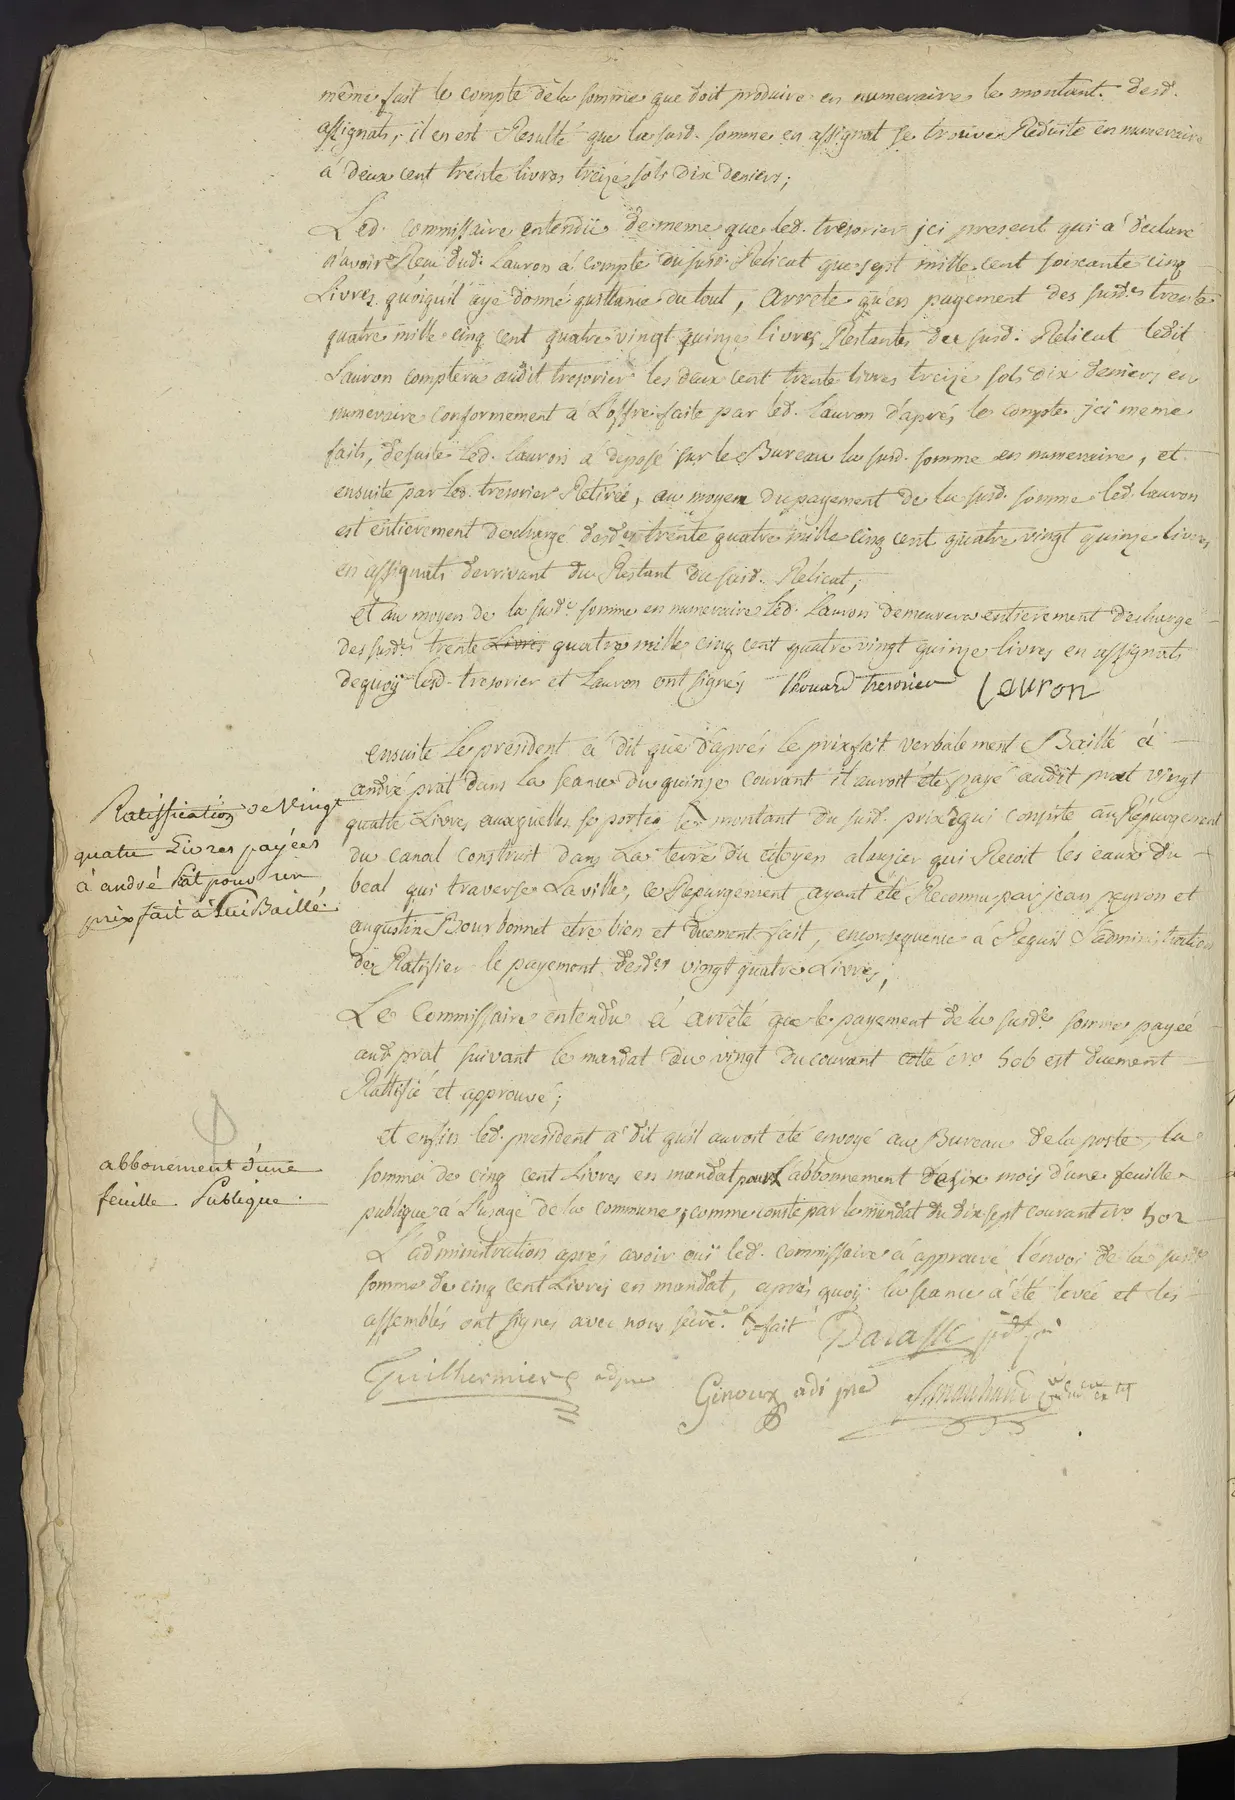 même fait le compte dela somme que doit produire en numeraire le montant desd.
assignats, il en est Resulté que la susd. somme en assignat se trouve Reduite en numeraire
à deux cent trente livres treize sols dix deniers;
Led. commissaire entendu de meme que led. tresorier jci present qui a déclaré
n'avoir Reçu dud. Lauron à compte du susd. Relicat que sept mille cent soixante cinq
Livres quoiquil aye donné quittance du tout, arrete qu'en payement des susdes trente
quatre mille cinq cent quatre vingt quinze livres Restantes du susd. Relicat ledit
Lauron comptera audit tresorier les deux cent trente livres treize sols dix deniers en
numeraire conformement à L'offre faite par led. Lauron d'aprés le compte jci meme
fait, desuite Led. Lauron a deposé sur le Bureau la susd. somme en numeraire, et
ensuite par Led. tresorier Retirée, au moyen du payement de la susd. somme led. Lauron
est entierement dechargé desdes trente quatre mille cinq cent quatre vingt quinze livres
en assignats derrivant du Restant du susd. Relicat;
et au moyen de la susde somme en numeraire Led. Lauron demeurera entierement decharge
des susdes trente Livres quatre mille cinq cent quatre vingt quinze livres en assignats
dequoy Lesd. tresorier et Lauron ont signés tresorier Lauron
ensuite Le président a dit que d'aprés le prixfait verbalement Baillé à
andré prat dans la seance du quinze courant il auroit été payé audit prat vingt
quatre Livres auxquelles se porte le montant du susd. prix qui consiste au Répurgement
du canal construit dans La terre du citoyen alauzier qui Recoit les eaux du
beal qui traverse La ville, ce Repurgement ayant été Reconnu par jean peyron et
augustin Bourbonnet etre bien et duement fait, enconsequence a Requis L'administration
de Ratifier le payement desdes vingt quatre Livres;
Ratiffication de Vingt
quatre Livres payées
à andré Prat pour un
prix fait à Lui Baillé.
Le Commissaire entendu a arrêté que le payement de la susde somme payée
aud. prat suivant le mandat du vingt du courant cotté no. 506 est duement
Rattifié et approuvé;
et enfin led. president a dit quil auroit été envoyé au Bureau de la poste, la
somme de cinq cent Livres en mandat pour L'abbonnement de six mois d'une feuille
publique à L'usage de la commune, comme conste par le mandat du dix sept courant no. 502
abbonement d'une
feuille Publique.
L'administration aprés avoir oui led. commissaire a approuvé l'envoi de la susde
somme de cinq cent Livres en mandat, aprés quoy la seance a été levée et les
assemblés ont signés avec nous secre. fait
Guilhermier adj
Genoux adj